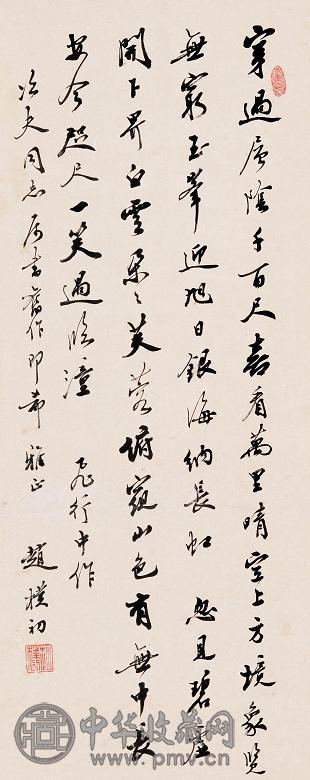 穿過層陰千百尺喜看萬里晴空上方境象覽
無窮玉峯迎旭日銀海納長虹 忽見碧虛
開下界白雲朵〻芙蓉俯窺山色有無中長
安今咫尺一笑過臨潼 飛行中作
夫同志属書舊作即希 雅正 趙樸初
中华收藏网
www.pmv.cn